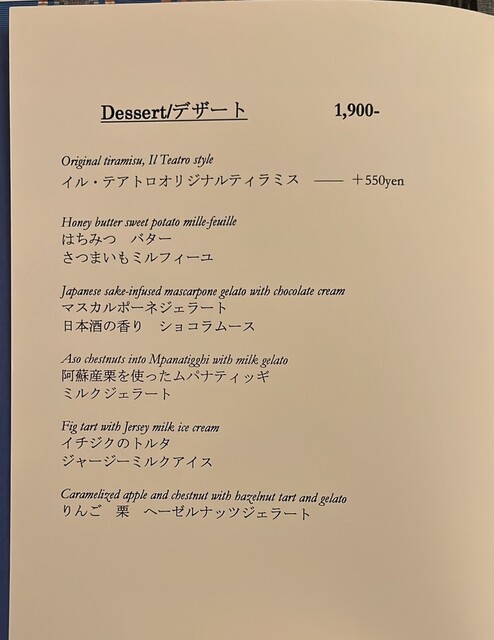 Dessert/デザート 1,900-
Original tiramisu, Il Teatro style
イル・テアトロオリジナルティラミス —— +550yen
Honey butter sweet potato mille-feuille
はちみつ バター
さつまいもミルフィーユ
Japanese sake-infused mascarpone gelato with chocolate cream
マスカルポーネジェラート
日本酒の香り ショコラムース
Aso chestnuts into Mpanatigghi with milk gelato
阿蘇産栗を使ったムパナティッギ
ミルクジェラート
Fig tart with Jersey milk ice cream
イチジクのトルタ
ジャージーミルクアイス
Caramelized apple and chestnut with hazelnut tart and gelato
りんご 栗 ヘーゼルナッツジェラート